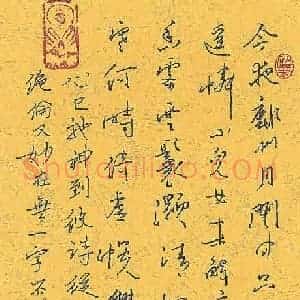 今夜鄜州月閨中只
遙憐小兒女未解
香霧雲鬟濕清
寒何時倚虛幌雙
心已神馳到彼詩從
絕倫又妙在無一字不